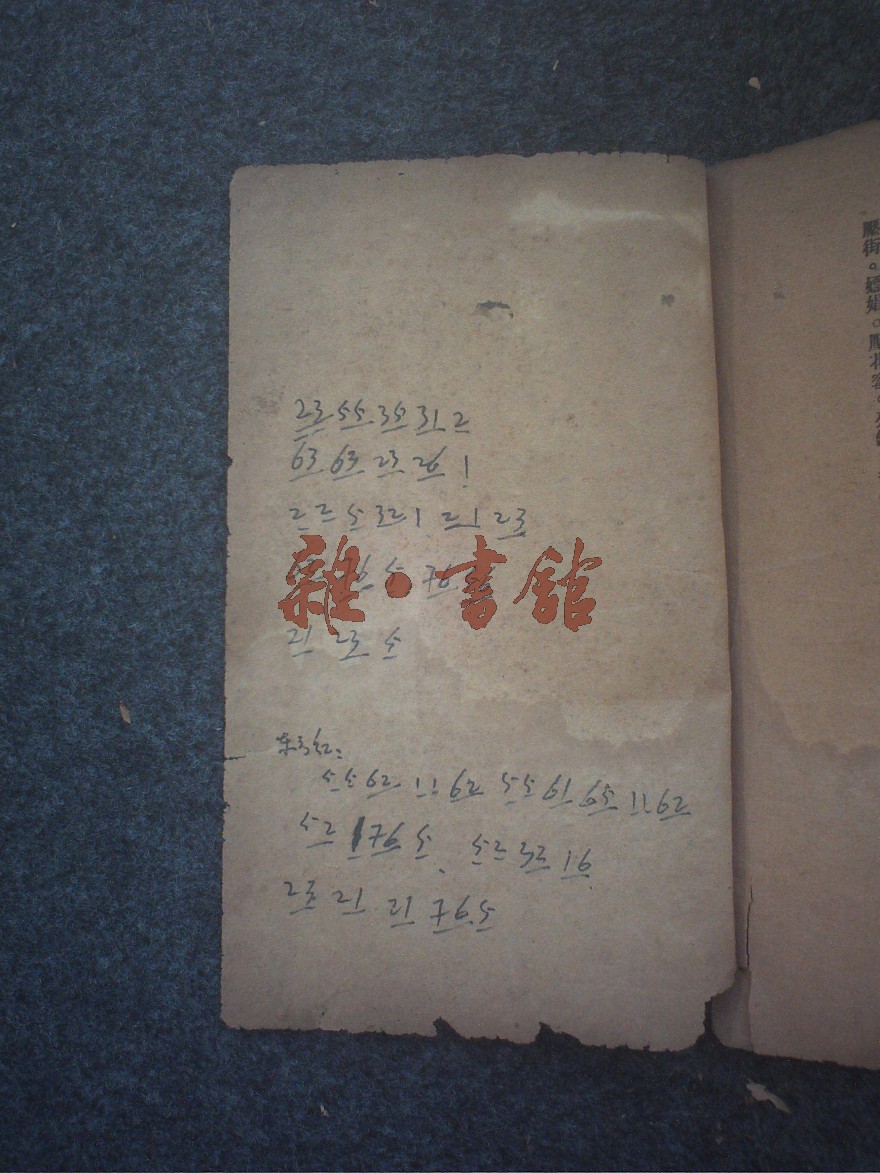 23 55 35 31 2
63 63 23 26 1
2 2 5 321 21 23
雜·書館
21 23 5
东方红:
5 5 62 1 1 62 5 5 61 65 1 1 62
52 176 5 52 32 16
23 21 21 765
壓街。